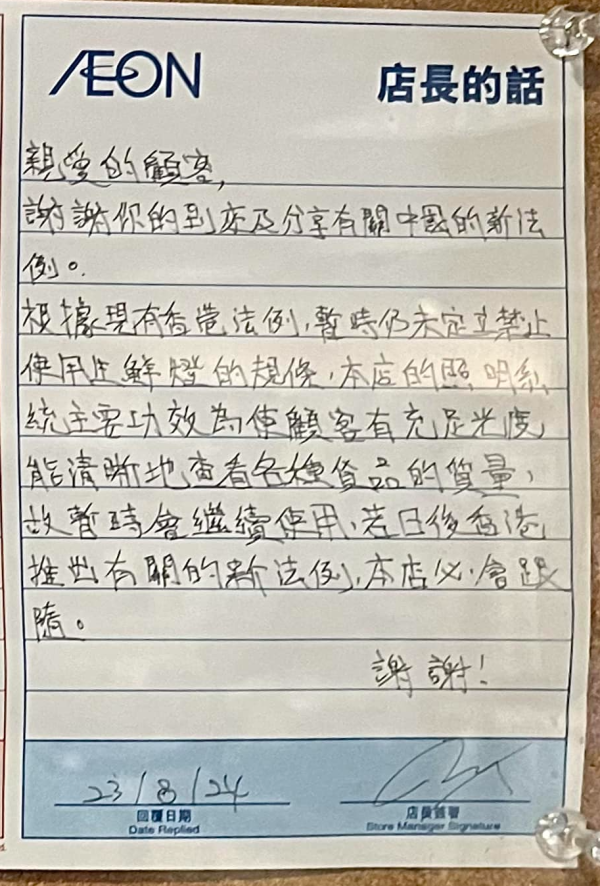 ÆON
店長的話
親愛的顧客,
謝謝你的到來及分享有關中國的新法
例。
根據現有香港法例,暫時仍未定立禁止
使用生鮮燈的規條,本店的照明系
統主要功效為使顧客有充足光度,
能清晰地查看各種貨品的質量,
故暫時會繼續使用,若日後香港
推出有關的新法例,本店必會跟
隨。
謝謝!
23/8/24
回覆日期
Date Replied
店長簽署
Store Manager Signature